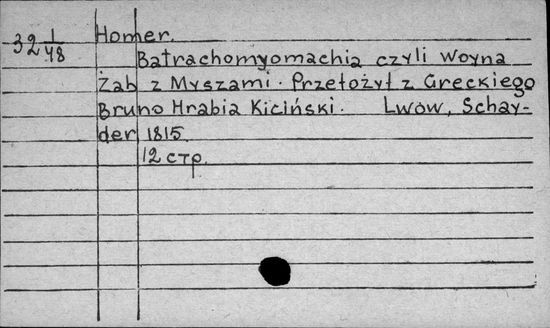 32 1/48
Homer.
Batrachomyomachia czyli Woyna
Żab z Myszami. Przełożył z Greckiego
Bruno Hrabia Kiciński. Lwow, Schay-
der 1815.
12 стр.